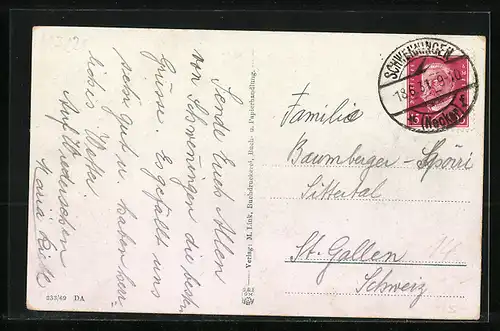 Sende Euch Allen
von Schwenningen die besten
Grüsse. Es gefällt uns
sehr gut u. haben herr-
liches Wetter
Auf Wiedersehen
Maria
Verlag: M. Link, Buchdruckerei, Buch- u. Papierhandlung.
233/49 DA
SCHWENNINGEN
(Neckar)
Familie
Baumberger-Spörri
Sittertal
St. Gallen
Schweiz